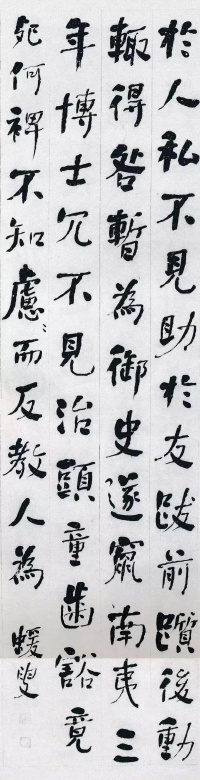 於人私不見助於友跋前躓後動
輒得咎暫為御史遂竄南夷三
年博士冗不見治頭童齒豁竟
死何裨不知慮慮而反教人為 蝯叟